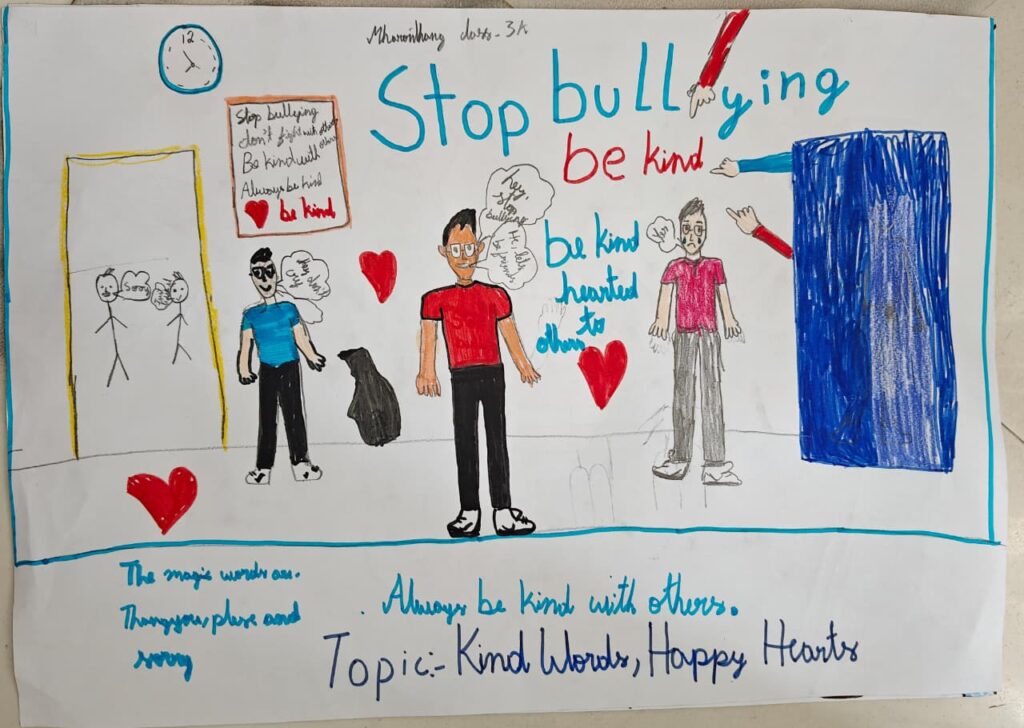 12
class - 3A
Stop bullying
be kind
Stop bullying
don't fight with others
Be kind with others
Always be kind
be kind
Hey, Stop bullying
Hi, let's be friends
be kind
hearted
to
others
Yes
Sorry
The magic words are.
Thangyou, plese and
sorry
Always be kind with others.
Topic:- Kind Words, Happy Hearts